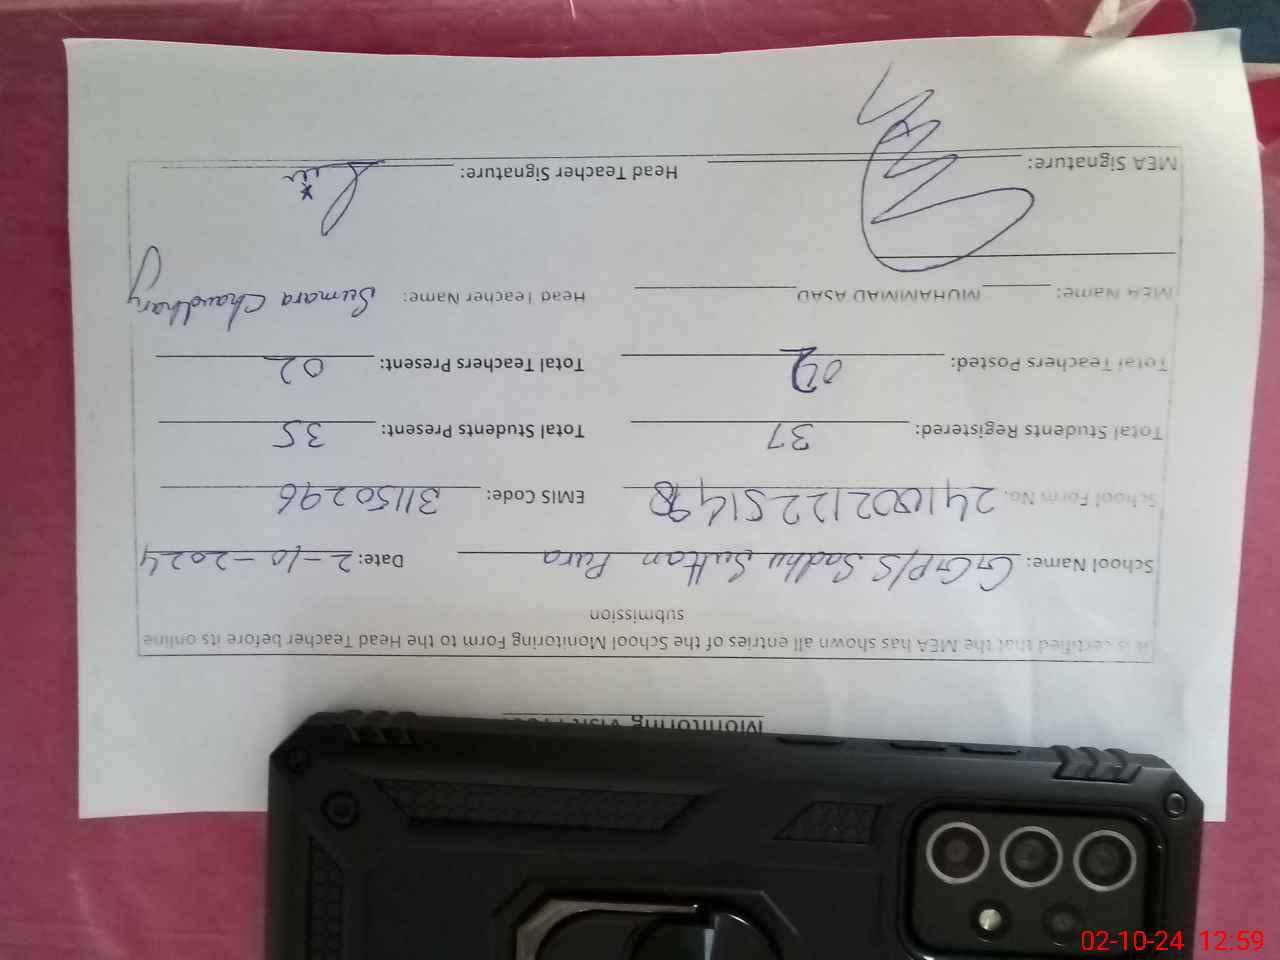 Monitoring Visit
It is certified that the MEA has shown all entries of the School Monitoring Form to the Head Teacher before its online
submission
School Name: GGP/S Sadhu Sultan Pura Date: 2-10-2024
School Form No. EMIS Code: 31150296
Total Students Registered: 37 Total Students Present: 35
Total Teachers Posted: 02 Total Teachers Present: 02
MEA Name: MUHAMMAD ASAD Head Teacher Name: Sumara Chaudhary
MEA Signature: Head Teacher Signature:
02-10-24 12:59